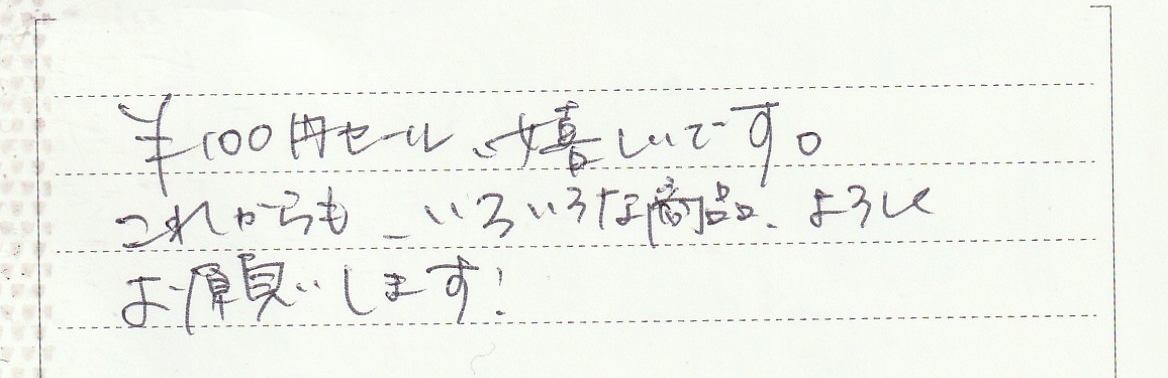 ¥100円セール、嬉しいです。
これからも、いろいろな商品、よろしく
お願いします!